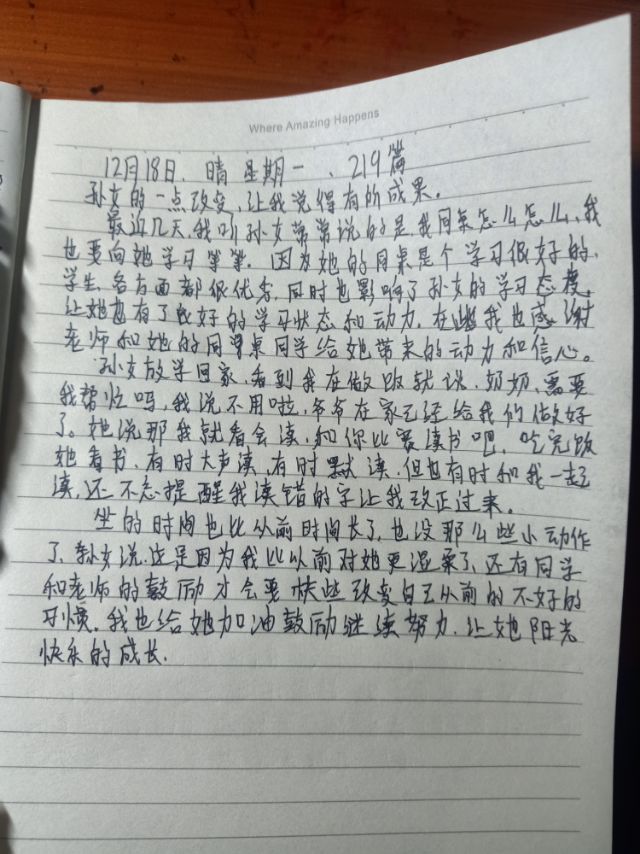 Where Amazing Happens
12月18日. 晴 星期一、219篇
孙女的一点改变,让我觉得有所成果。
最近几天我听孙女常常说的是,我同桌怎么怎么,我
也要向她学习等等. 因为她的同桌是个学习很好的,
学生,各方面都很优秀,同时也影响了孙女的学习态度,
让她也有了良好的学习状态和动力,在此我也感谢
老师和她的同桌同学给她带来的动力和信心。
孙女放学回家,看到我在做饭就说,奶奶,需要
我帮忙吗,我说不用啦,爷爷在家已经给我们做好
了。她说那我就看会读,和你比赛读书吧,吃完饭
她看书,有时大声读,有时默读,但也有时和我一起
读,还不忘提醒我读错的字让我改正过来。
坐的时间也比从前时间长了,也没那么些小动作
了,孙女说,这是因为我比以前对她更温柔了,还有同学
和老师的鼓励才会要快些改变自己从前的不好的
习惯,我也给她加油鼓励继续努力,让她阳光
快乐的成长.